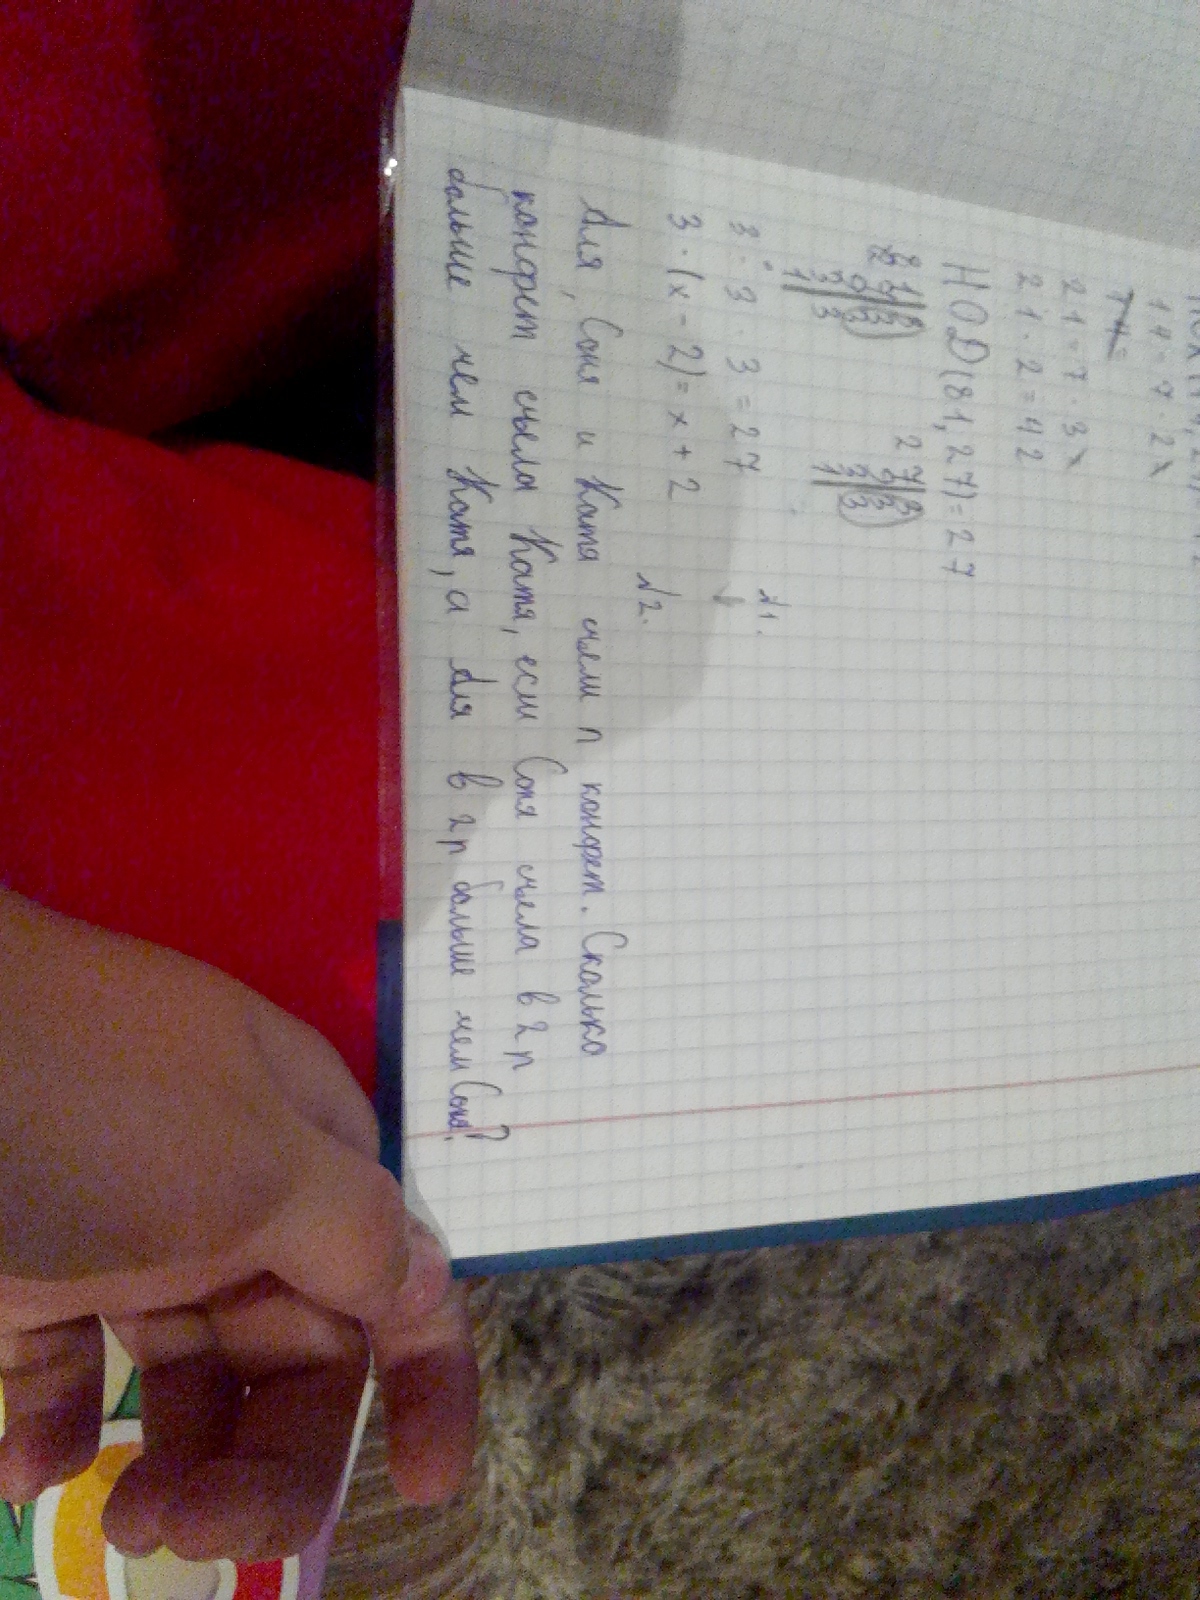 14 = 7 · 2 x
21 = 7 · 3 x
21 · 2 = 42
НОД(81, 27) = 27
81 3 27 3
27 3 9 3
9 3 3 3
3 3 1
1
3 · 3 · 3 = 27
№1.
3 · (x - 2) = x + 2
№2.
Аля, Соня и Катя съели n конфет. Сколько
конфет съела Катя, если Соня съела в 2 р
больше чем Катя, а Аля в 2 р больше чем Соня?